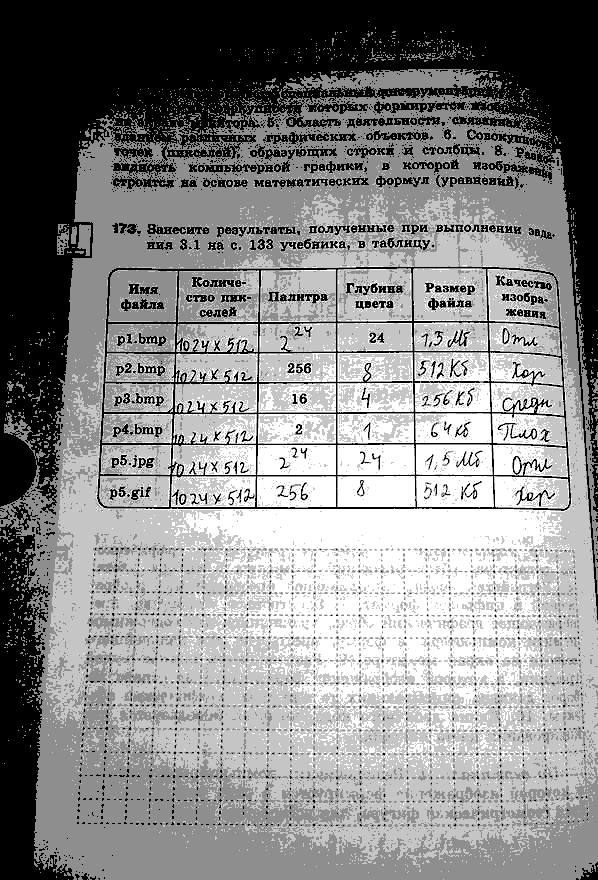 специальный инструментарий
которых формируется
монитора. 5. Область деятельности, связанная
различных графических объектов. 6. Совокупность
точек (пикселей), образующих строки и столбцы. 8. Разно-
видность компьютерной графики, в которой изображение
строится на основе математических формул (уравнений).
173. Занесите результаты, полученные при выполнении зада-
ния 3.1 на с. 133 учебника, в таблицу.
Имя файла | Количе-ство пик-селей | Палитра | Глубина цвета | Размер файла | Качество изобра-жения
p1.bmp 1024 x 512 2^24 24 1,5 Мб Отл
p2.bmp 1024 x 512 256 8 512 Кб Хор
p3.bmp 1024 x 512 16 4 256 Кб Средн
p4.bmp 1024 x 512 2 1 64 Кб Плох
p5.jpg 1024 x 512 2^24 24 1,5 Мб Отл
p5.gif 1024 x 512 256 8 512 Кб Хор